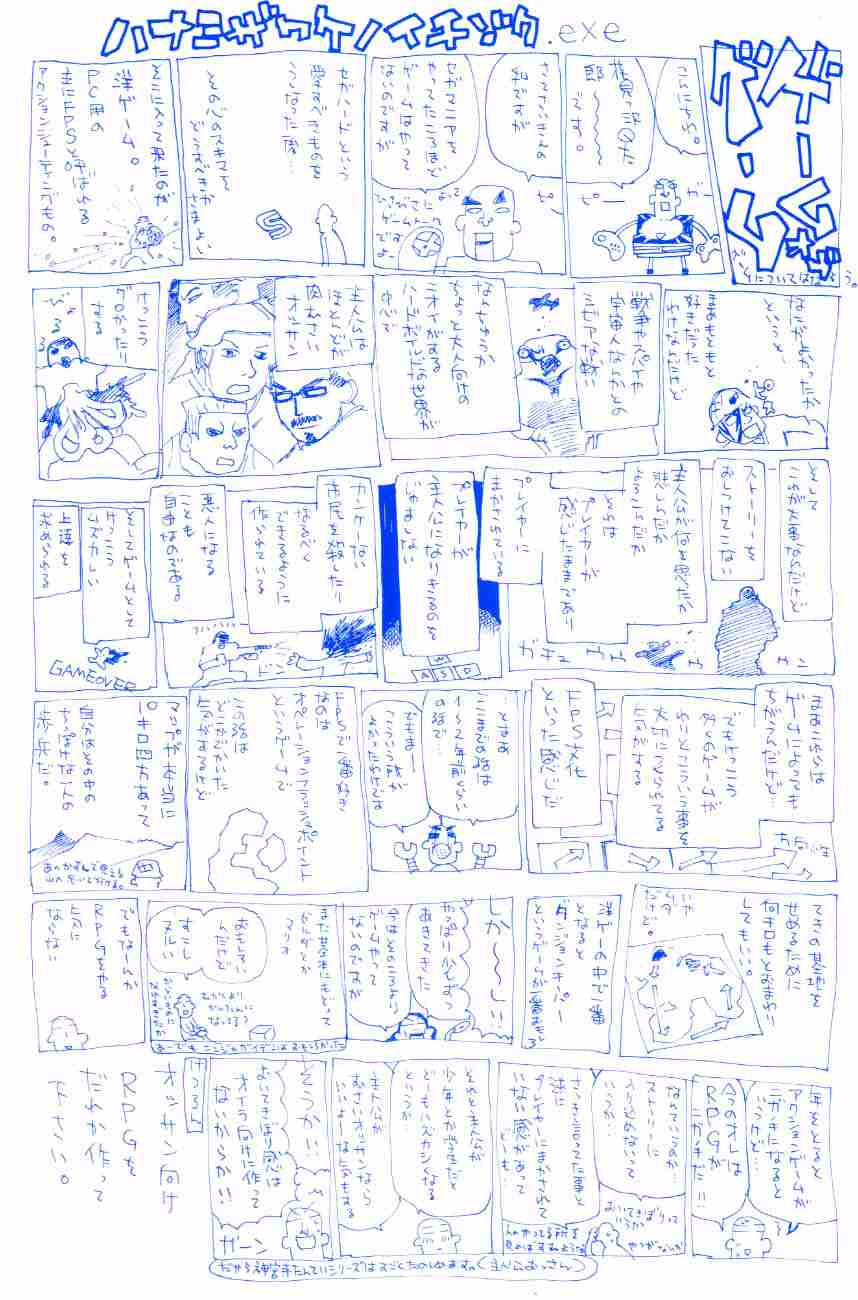 ハナミザワケノイチゾク.exe
こんにちわ。
です。
ピー
ガー
さてさいきんの
私ですが
セガマニアを
やってたころほど
ゲームはやって
ないのですが
ピン
セガハードという
愛すべきものを
うしなった僕…
その心のスキマを
どううめるべきか
さまよい
そこに入って来たのが
洋ゲーム。
PC用の
主にFPSと呼ばれる
アクションシューティングもの。
なにがよかったか
というと、
まあもともと
好きだった
わけなんだけど
戦争やスパイや
宇宙人なんかとの
シビアな戦い
なんちゅうか
ちょっと大人向けの
ニオイがする
ハードボイルドな世界が
中心で
主人公は
ほとんどが
肉くさい
オッサン
けっこう
グロかったり
する
そして
これが大事なんだけど
ストーリーを
おしつけてこない
主人公が何を思ったか
悲しんだか
よろこんだか
それは
プレイヤーが
感じたままであり
プレイヤーに
まかされている
プレイヤーが
主人公になりきるのを
じゃましない
W
A S D
カンケーない
市民を殺したり
なるべく
できるように
作られている
悪人になる
ことも
自由なのである。
ドン
そしてゲームとして
けっこう
ムズカしい
上達を
求められる
GAMEOVER
まあこれらは
ゲームによっても
ちがうんだけど…
でもけっこう
多くのゲームが
わりとこういう事を
大切につくられてる
気がする
FPS文化
といった感じだ
とまあ
ここまでの話は
1〜2年前くらい
の話で…
でもまー
こういう所が
よかったわけです
FPSで一番好き
なのは
オペレーションフラッシュポイント
というゲームで
この話は
どこかでかいた
気がするけど
マップが本当に
何キロ四方あって
自分はその中の
ちっぽけな一人の
歩兵だ。
あのかすんで見える
山へ歩いて行ける。
てきの基地を
せめるために
何キロもとおまわり
してもいい。
洋ゲーの中で一番
となると
ダンジョンキーパー
というゲームが一番おもしろい
しか〜〜し!!
やっぱり少しずつ
あきてきた
今はそのころより
ゲームやって
ないのですが
また基本にもどって
ゼルダとか
マリオ
おもしろい
んだけど
すこし
ヌルい
むかしより
かんたんに
なってるう
あーでも ニンジャガイデンはおもしろかった
でもなーんか
RPGをやる
気に
ならない
年をとると
アクションゲームが
ニガテになると
いうけど…
今のオレは
RPGが
ニガテだ!!
なんていうのか…
ストーリーに
入り込めないって
いうか
さっき言ってた事と
逆に
プレイヤーにまかされて
いない感があって
どーも…
おいてきぼりって
いうか
それと主人公が
少年とか学生だと
どーもハズカシくなる
というか…
主人公が
むさいオッサンなら
いいよーな気もする
そうか!!
おいてきぼり感は
オイラ向けに作って
ないからか!!
ガーン
だから神宮寺たんていシリーズはすごくたのしめますね(主人公おっさん)
けつろん
オッサン向け
RPGを
だれか作って
下さい。